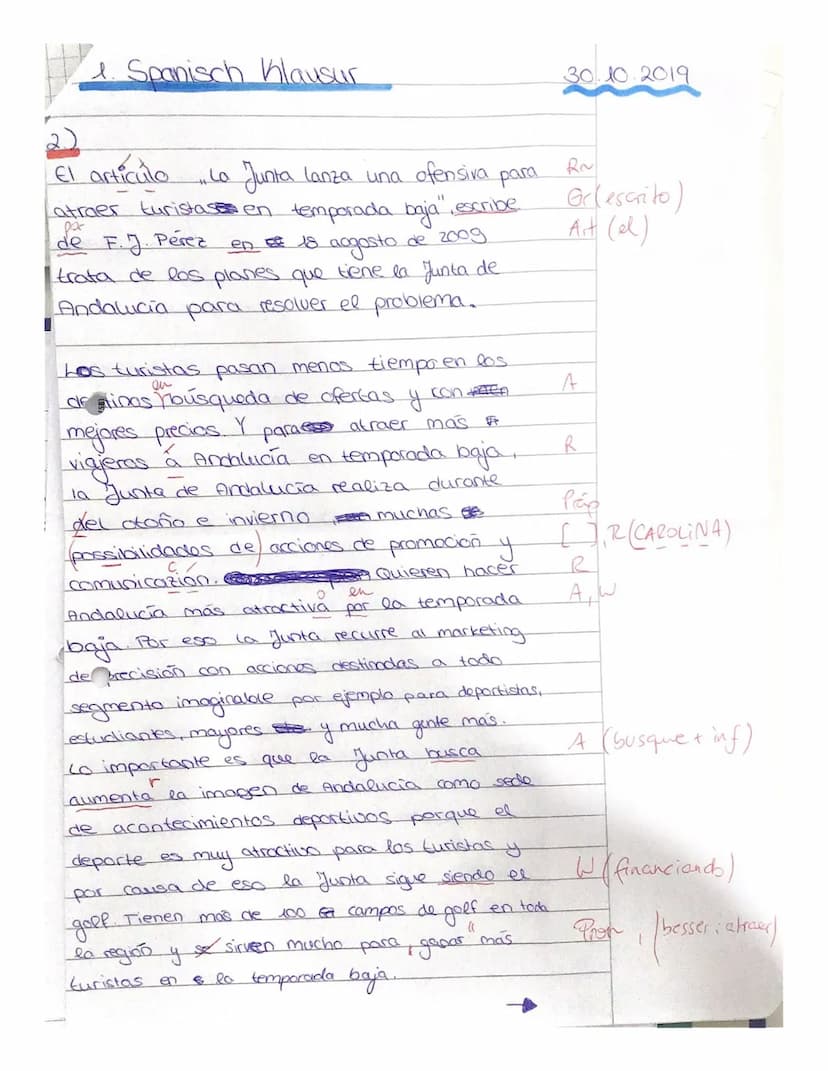 1. Spanisch Klausur 30.10.2019
2.)
El artículo „La Junta lanza una ofensiva para Rn
atraer turistas en temporada baja", escribe Gr (escrito)
por
de F. J. Pérez en 18 aogosto de 2009 Art (el)
trata de los planes que tiene la Junta de
Andalucía para resolver el problema.
Los turistas pasan menos tiempo en los
en
búsqueda de ofertas y con A
mejores precios. Y para atraer más
viajeros a Andalucía en temporada baja, R
la Junta de Andalucía realiza durante
del otoño e invierno muchas Präp
(possibilidades de) acciones de promoción y [ ], R (CAROLiNA)
c
comunicazión. Quieren hacer R
o en
Andalucía más atractiva por la temporada A, W
baja. Por eso la Junta recurre al marketing
de precisión con acciones destinadas a todo
segmento imaginable por ejemplo para deportistas,
estudiantes, mayores y mucha gente más.
Lo importante es que la Junta busca A (busque + inf)
r
aumenta la imagen de Andalucía como sede
de acontecimientos deportivos porque el
deporte es muy atractivo para los turistas y
por causa de eso la Junta sigue siendo el W (financiando)
golf. Tienen más de 100 campos de golf en toda
la región y sirven mucho para „ganar" más Pron, (besser: atraer)
turistas en la temporada baja.